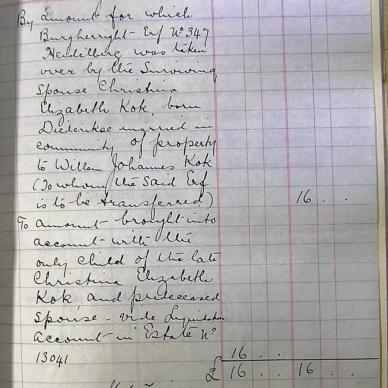 By Amount for which
Burgherright- Erf No 347
Heidelberg was taken
over by the Surviving
Spouse Christina
Elizabeth Kok, born
Diederikse married in
community of property
to Willem Johannes Kok
(To whom the said Erf
is to be transferred) 16 . .
To amount- brought into
account with the
only child of the late
Christina Elizabeth
Kok and predeceased
Spouse - vide Liquidation
Account in Estate No
13041 16 . .
£ 16 . . 16 . .